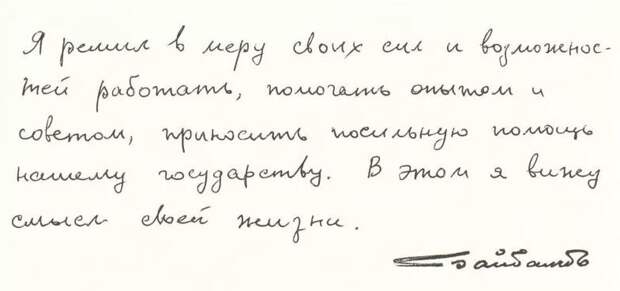 Я решил в меру своих сил и возможнос-
тей работать, помогать опытом и
советом, приносить посильную помощь
нашему государству. В этом я вижу
смысл своей жизни.